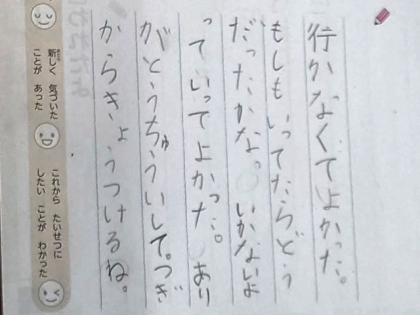 行かなくてよかった。
もしもいってたらどう
だったかな。いかないよ
っていってよかった。あり
がとうちゅういして。つぎ
からきょうつけるね。
新しく 気づいた
ことが あった
これから たいせつに
したい ことが わかった